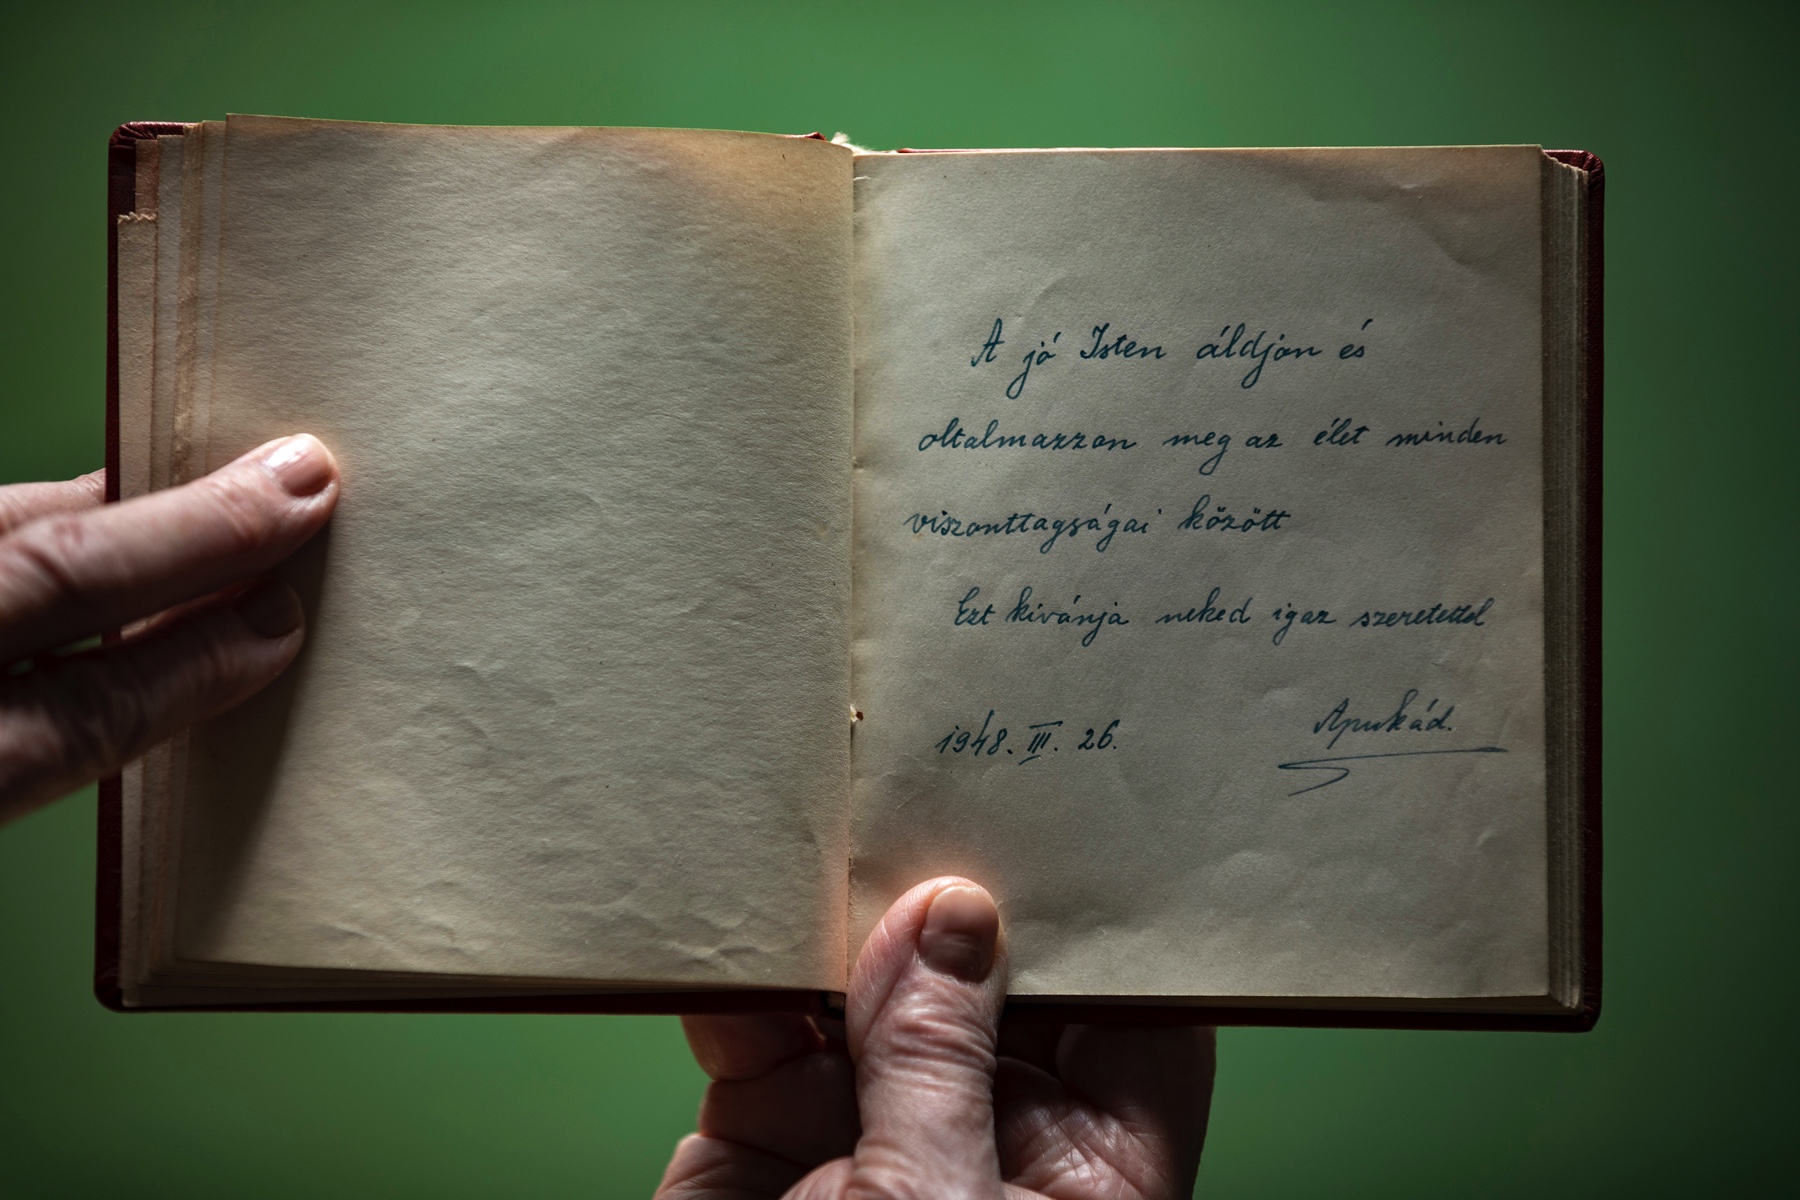 A jó Isten áldjon és
oltalmazzon meg az élet minden
viszonttagságai között
Ezt kivánja neked igaz szeretettel
1948. III. 26. Apukád.